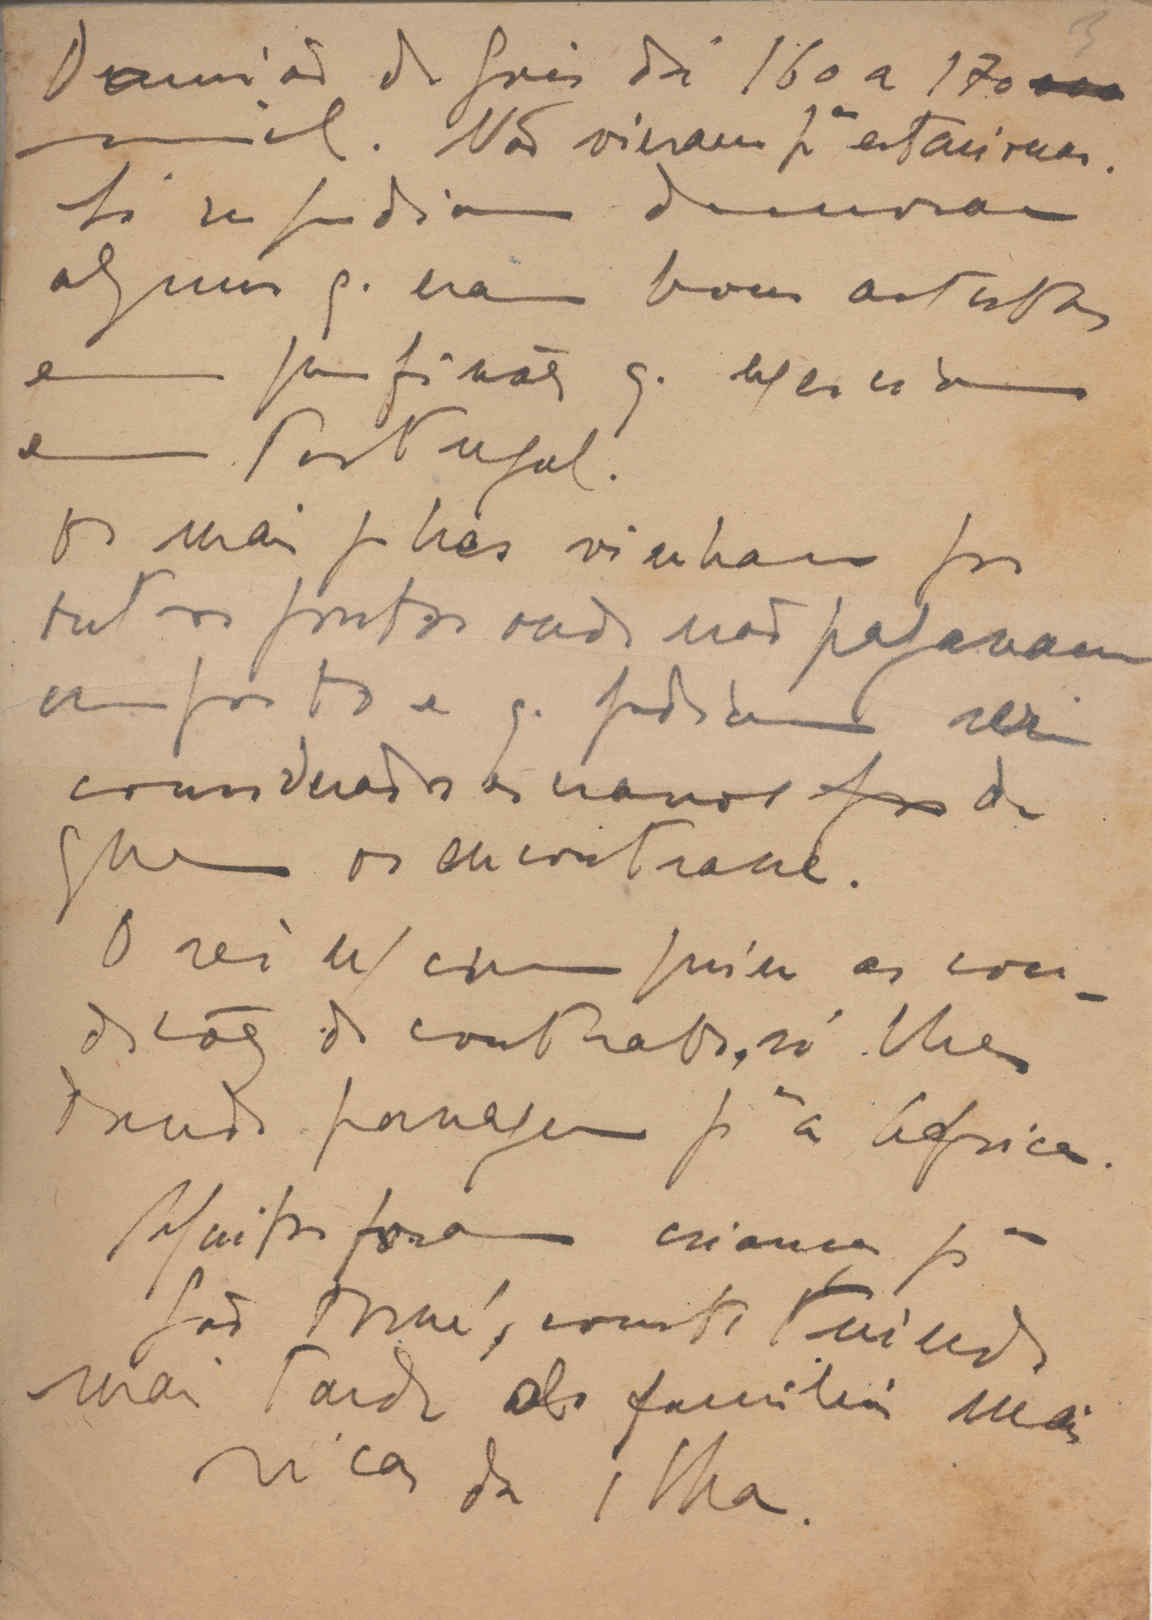 3
Damião de Goes dá 160 a 170 000
mil. Não vieram pª estacionar.
Só se podiam demorar
alguns q. eram bons artistas
em profissões q. exerciam
em Portugal.
Os mais pobres vinham por
outros pontos onde não pagavam
imposto e q. podiam ser
considerados escravos por de
quem os encontrasse.
O rei ñ cumpriu as con-
dições do contrato, só lhes
dando passagem pª a Africa.
Muitos foram creanças pª
São Tomé, constituindo
mais tarde as familias mais
ricas da ilha.